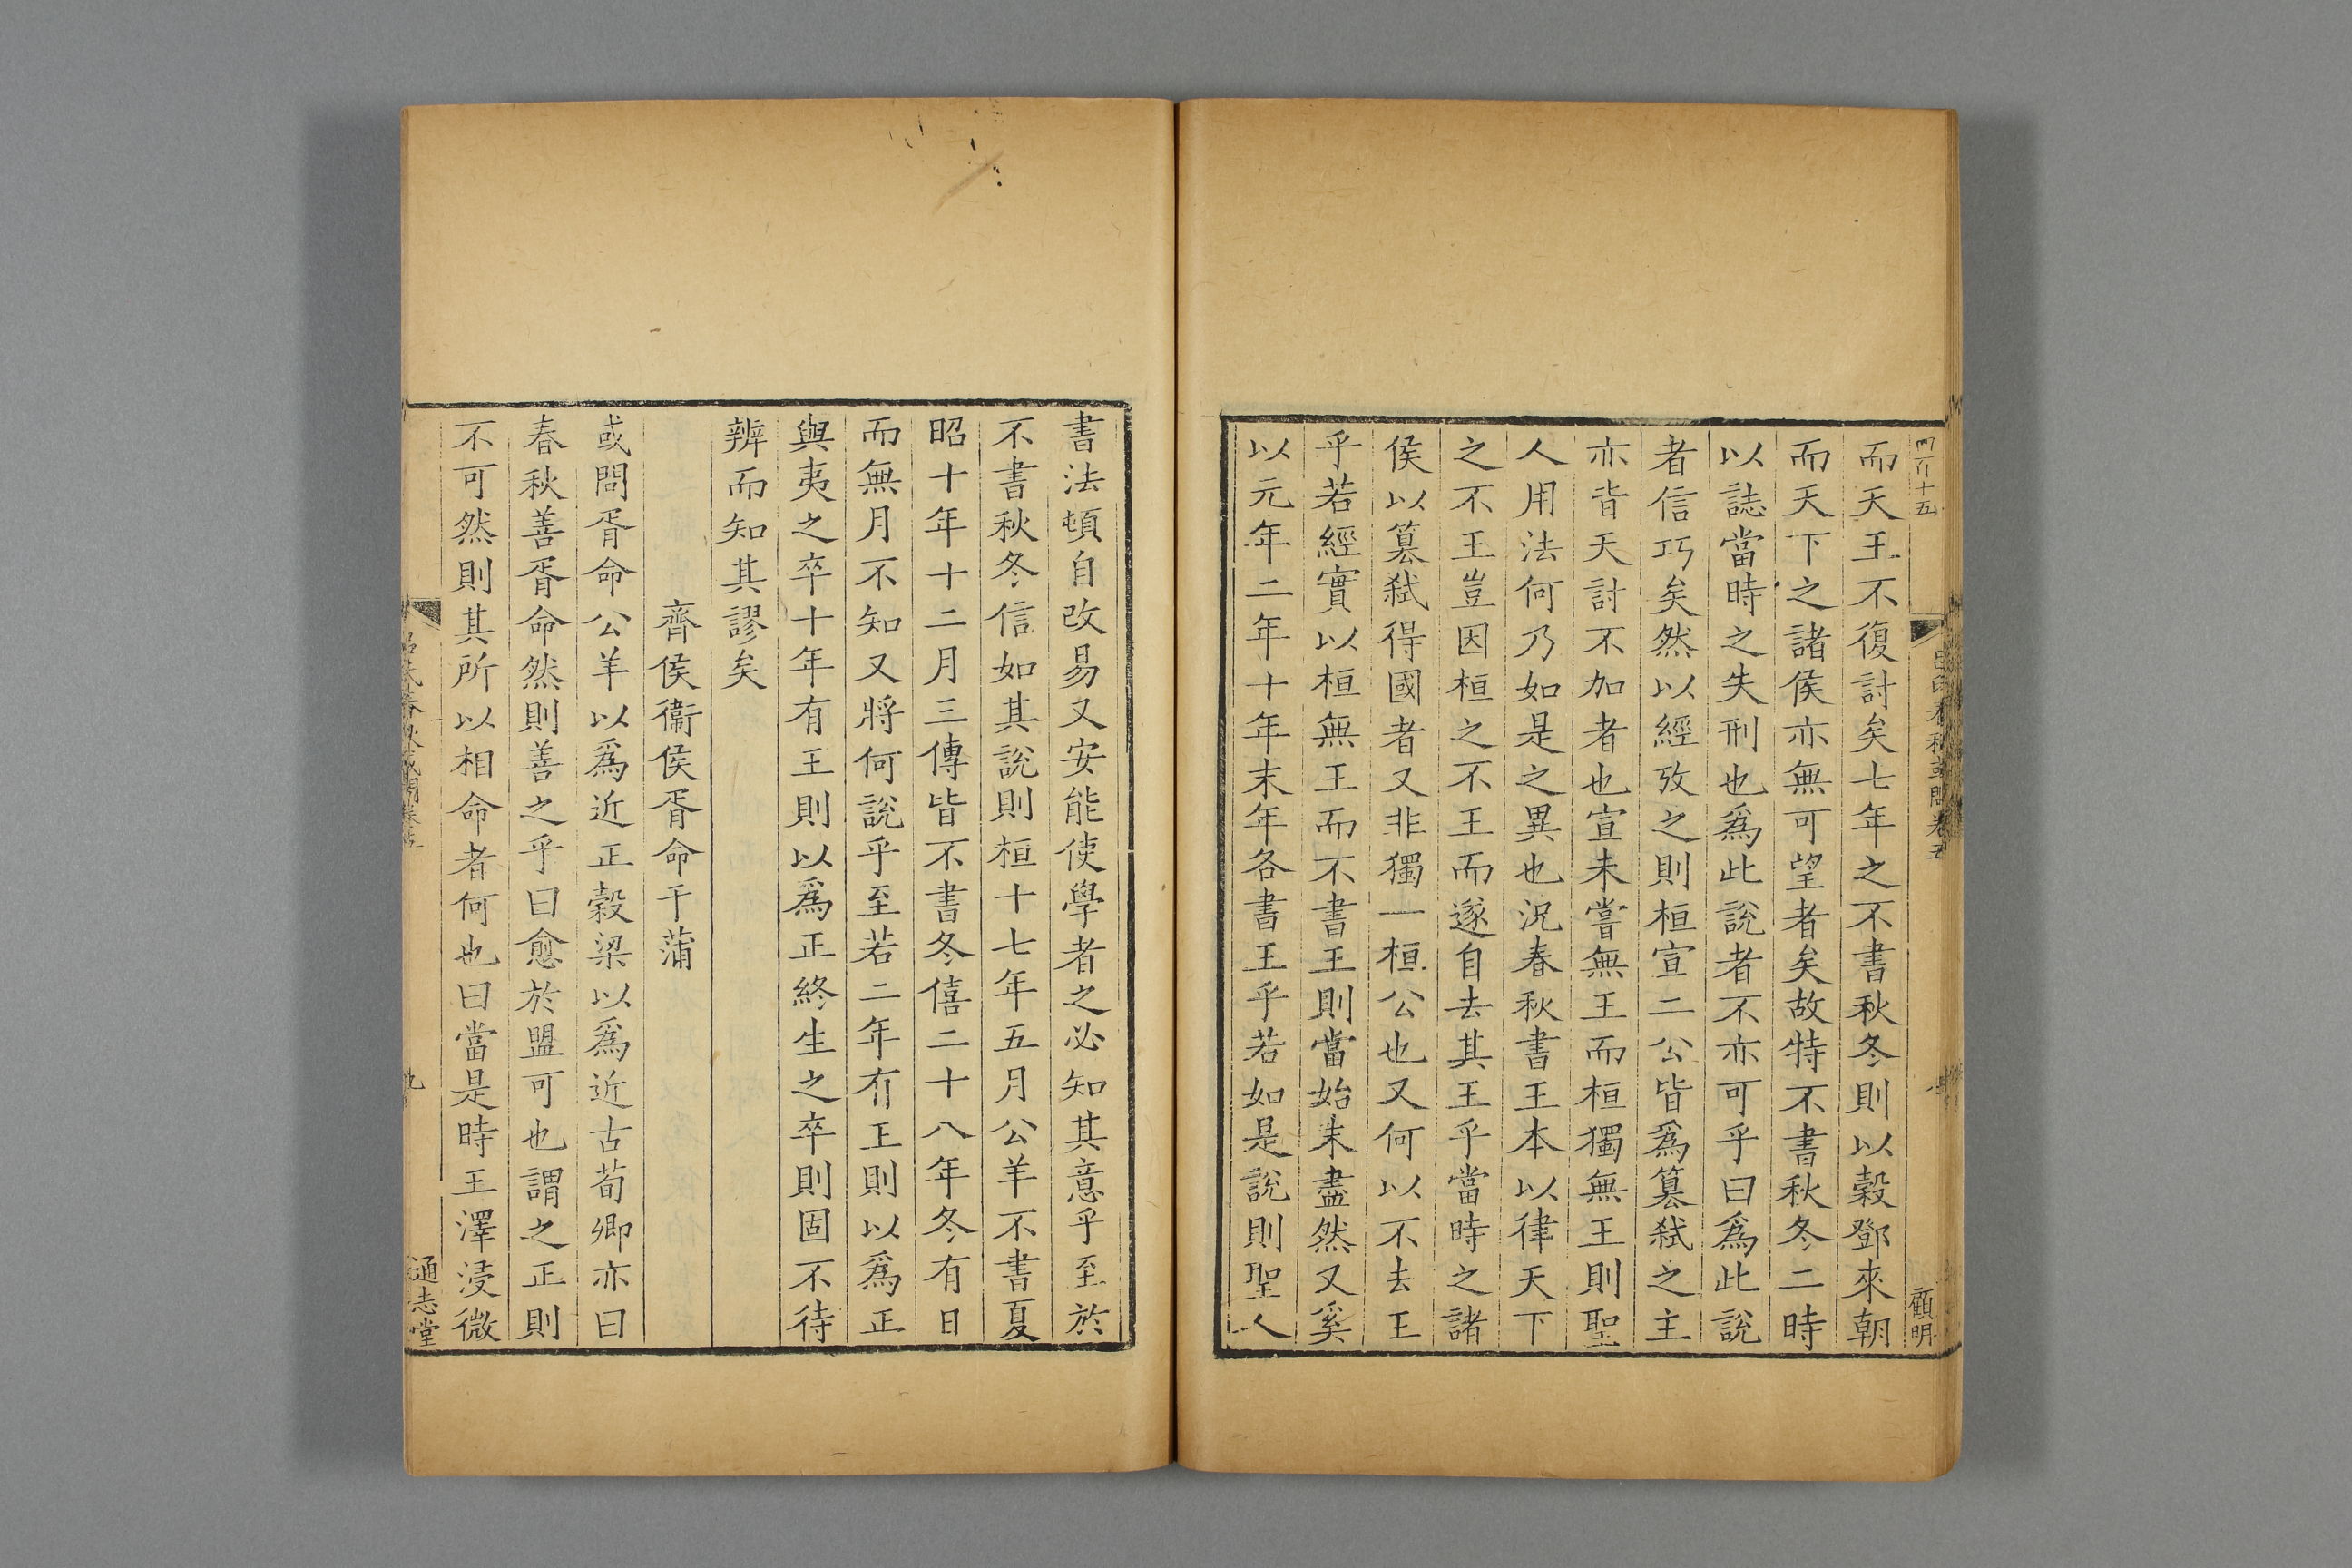 四百十五
顧明
而天王不復討矣七年之不書秋冬則以穀鄧來朝
而天下之諸侯亦無可望者矣故特不書秋冬二時
以誌當時之失刑也爲此說者不亦可乎曰爲此說
者信巧矣然以經攷之則桓宣二公皆爲篡弑之主
亦皆天討不加者也宣未嘗無王而桓獨無王則聖
人用法何乃如是之異也況春秋書王本以律天下
之不王豈因桓之不王而遂自去其王乎當時之諸
侯以篡弑得國者又非獨一桓公也又何以不去王
乎若經實以桓無王而不書王則當始末盡然又奚
以元年二年十年末年各書王乎若如是說則聖人
書法頓自改易又安能使學者之必知其意乎至於
不書秋冬信如其說則桓十七年五月公羊不書夏
昭十年十二月三傳皆不書冬僖二十八年冬有日
而無月不知又將何說乎至若二年有王則以爲正
與夷之卒十年有王則以爲正終生之卒則固不待
辨而知其謬矣
齊侯衞侯胥命于蒲
或問胥命公羊以爲近正穀梁以爲近古荀卿亦曰
春秋善胥命然則善之乎曰愈於盟可也謂之正則
不可然則其所以相命者何也曰當是時王澤浸微
呂氏春秋或問卷五
九
通志堂